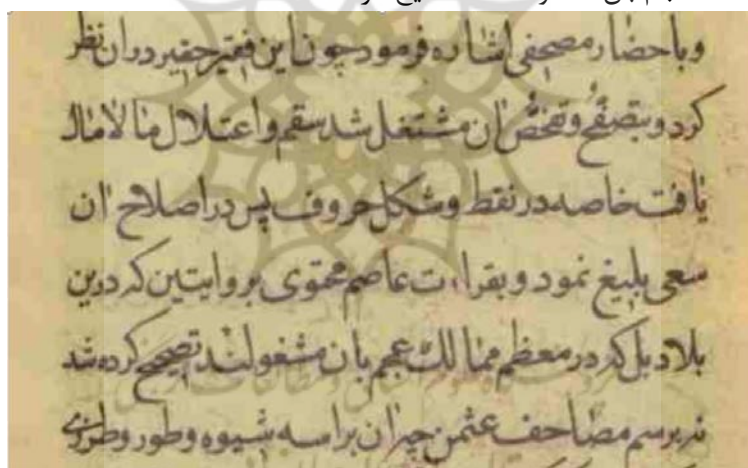 وباحضار مصحفی اشاره فرمود چون این فقیر حقیر در ان نظر
کرد و بتصفح و تفحص ان مشتغل شد سقم و اعتلال ما لا مالا
یافت خاصه در نقط و شکل حروف پس در اصلاح ان
سعی بلیغ نمود و بقراءت عاصم محتوی بروایتین که درین
بلاد بل که در معظم ممالک عجم بان مشغولند تصحیح کرده شد
نه برسم مصاحف عثمن چه ان براسه شیوه و طور و طرزی